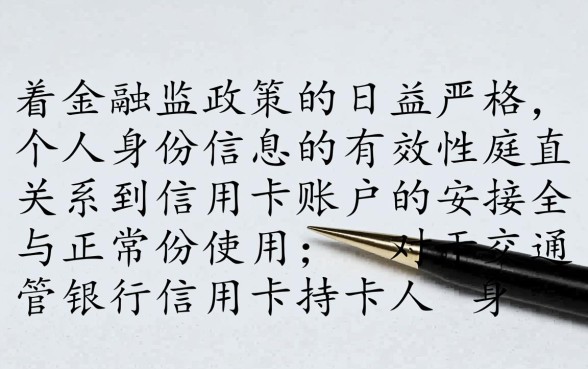 着金融监政策的日益严格，
个人身份信息的有效性庭直
关系到信用卡账户的安接全
与正常份使用； 对于交通
管银行信用卡持卡人 身